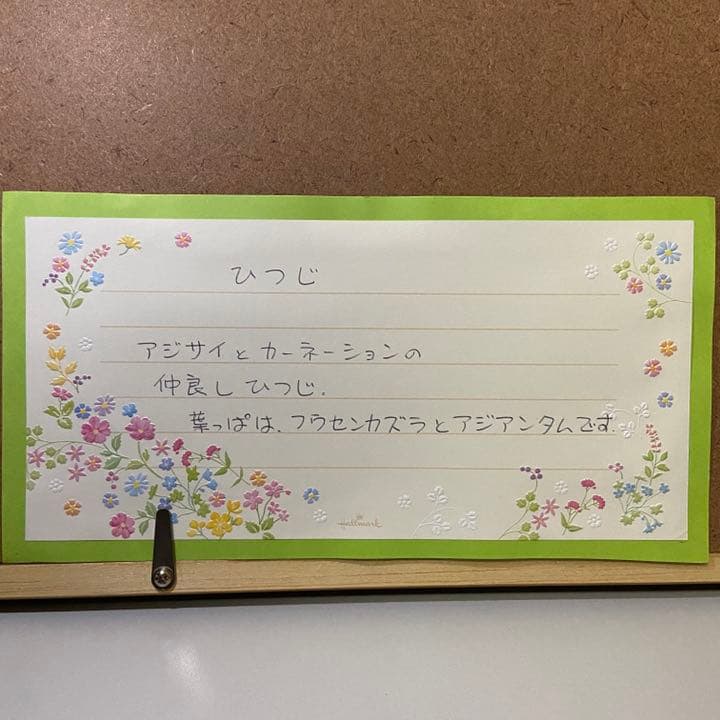 ひつじ
アジサイとカーネーションの
仲良しひつじ.
葉っぱは、フウセンカズラとアジアンタムです.
Hallmark